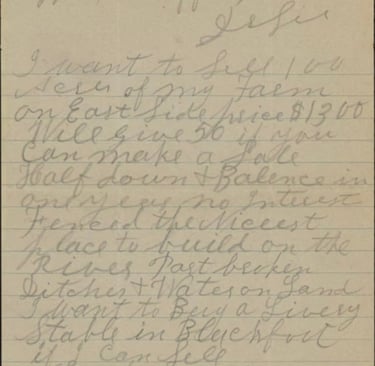 Dr Sir
I want to Sell 100
Acres of my Farm
on East Side price $1300
Will give 50 if you
Can make a Sale
Half down & Balence in
one year no Interest
Fenced the Niceest
place to build on the
River Part broken
Ditches & Water on Land
I want to Buy a Livery
Stable in Blackfoot
if I Can Sell